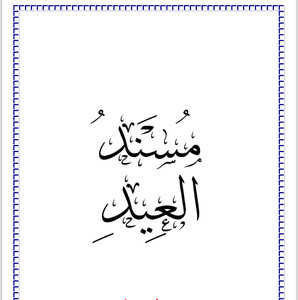 مُسنَدُ
العِيدِ